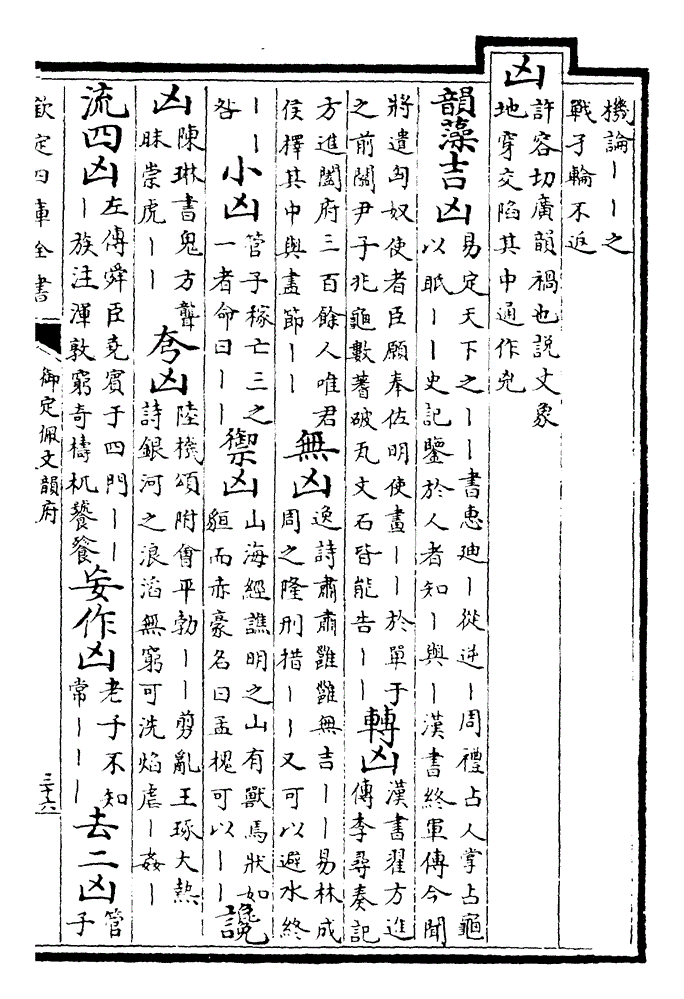 機論丨丨之
戰子輪不返
凶
許容切廣韻禍也説文象
地穿交陷其中通作兇
韻藻吉凶
易定天下之丨丨書惠廸丨從逆丨周禮占人掌占龜
以眡丨丨史記鑒於人者知丨與丨漢書終軍傳今聞
將遣匈奴使者臣願奉佐明使畫丨丨於單于
之前關尹子兆龜數蓍破瓦文石皆能告丨丨
轉凶
漢書翟方進
傳李尋奏記
方進闔府三百餘人唯君
侯擇其中與盡節丨丨
無凶
逸詩肅肅雝雝無吉丨丨易林成
周之隆刑措丨丨又可以避水終
丨丨
咎
小凶
管子稼亡三之
一者命曰丨丨
禦凶
山海經譙明之山有獸焉狀如
貆而赤豪名曰孟槐可以丨丨
讒
凶
陳琳書鬼方聾
昧崇虎丨丨
夸凶
陸機頌附會平勃丨丨剪亂王琢大熱
詩銀河之浪滔無窮可洗焰虐丨姦丨
流四凶
左傳舜臣堯賓于四門丨丨
丨族注渾敦窮奇檮杌饕餮
妄作凶
老子不知
常丨丨丨
去二凶
管
子
欽定四庫全書
御定佩文韻府
三十六